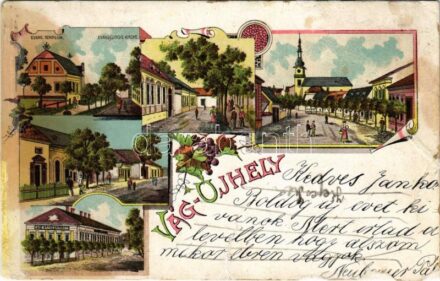 EVANG. TEMPLOM.
EVANGELISCHE KIRCHE.
VÁG-ÚJHELY
Kedves Jankó
Boldog új évet ki
vánok Miért írtad a
levélben hogy alszom
mikor ébren vagyok.